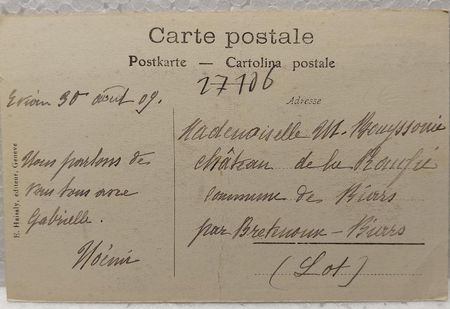 Carte postale
Postkarte — Cartolina postale
27706
Adresse
Evian 30 août 09.
Nous parlons de
vous tous avec
Gabrielle.
Noémi
E. Haissly, éditeur, Genève
Mademoiselle M. Bouyssonie
château de la
commune de Biars
par Bretenoux-Biars
(Lot)